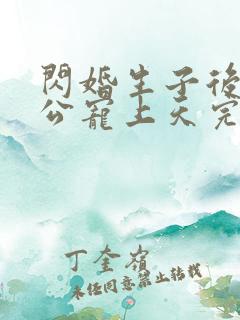 閃婚生子後
公寵上天完
丁奎嶺
未經同意禁止轉載